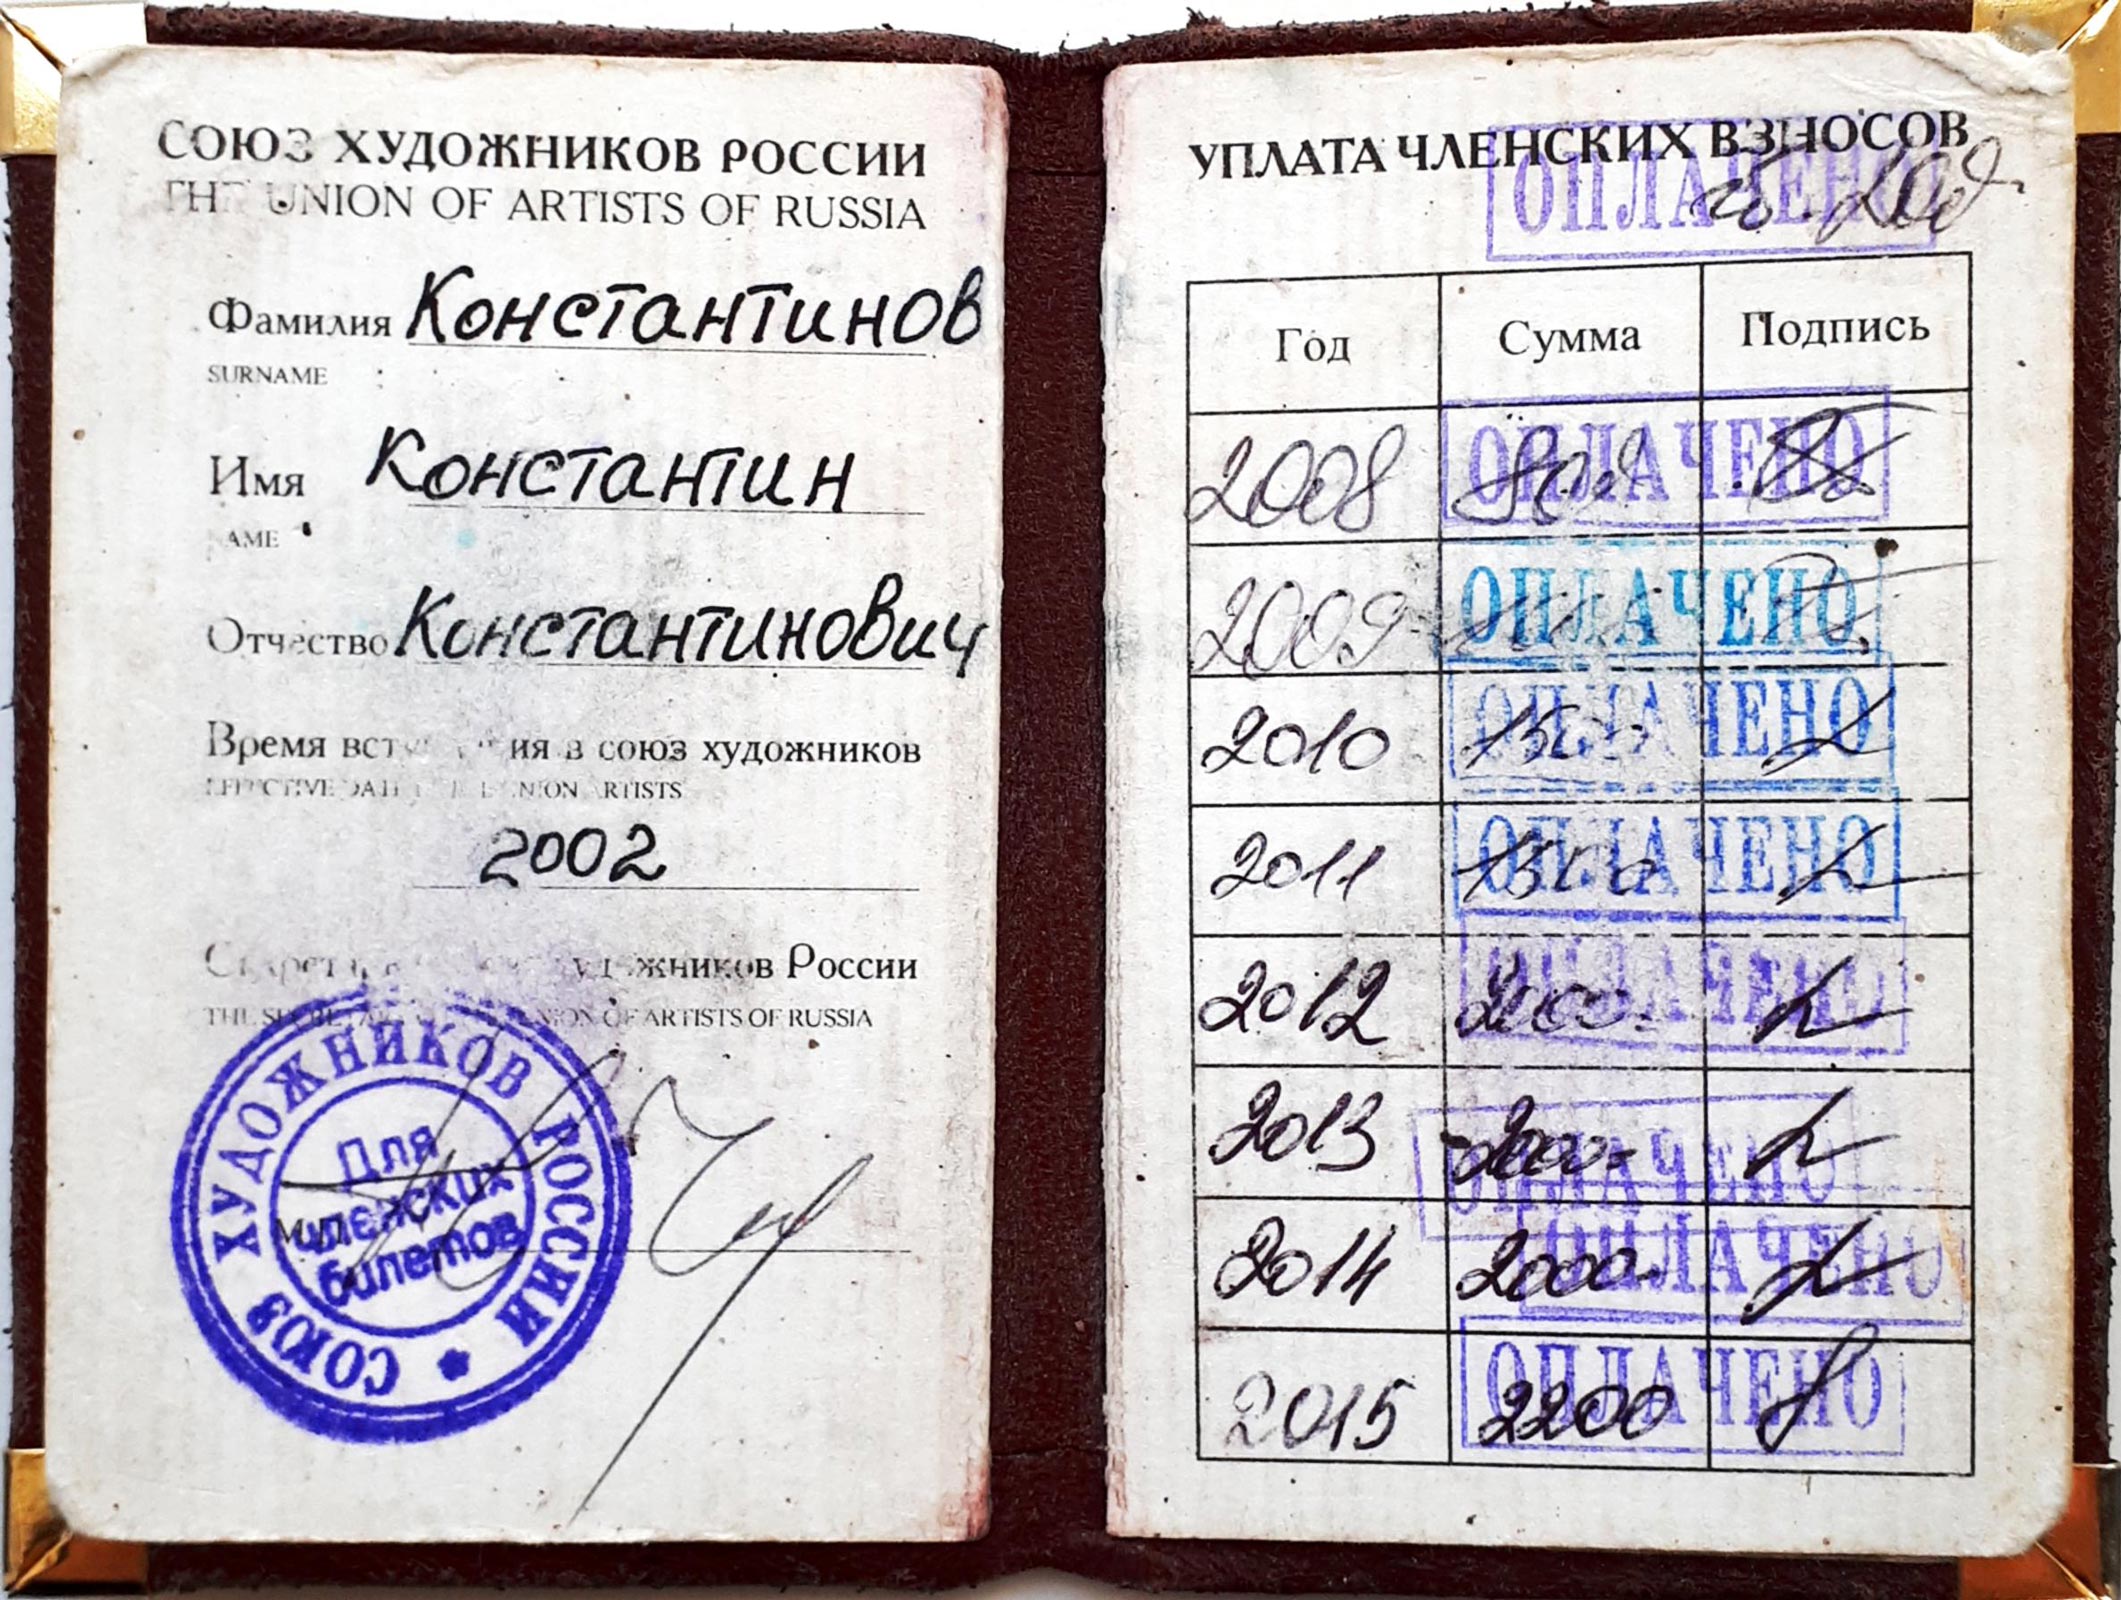 СОЮЗ ХУДОЖНИКОВ РОССИИ
THE UNION OF ARTISTS OF RUSSIA
Фамилия Константинов
SURNAME
Имя Константин
NAME
Отчество Константинович
Время вступления в союз художников
EFFECTIVE DATE UNION ARTISTS
2002
Секретарь художников России
THE SECRETARY UNION OF ARTISTS OF RUSSIA
М.П.
СОЮЗ ХУДОЖНИКОВ РОССИИ
Для
членских
билетов
УПЛАТА ЧЛЕНСКИХ ВЗНОСОВ
ОПЛАЧЕНО
Год Сумма Подпись
2008 800 ОПЛАЧЕНО
2009 ОПЛАЧЕНО
2010 1500 ОПЛАЧЕНО
2011 1500 ОПЛАЧЕНО
2012 2000 ОПЛАЧЕНО
2013 -2000- ОПЛАЧЕНО
2014 2000- ОПЛАЧЕНО
2015 2200 ОПЛАЧЕНО